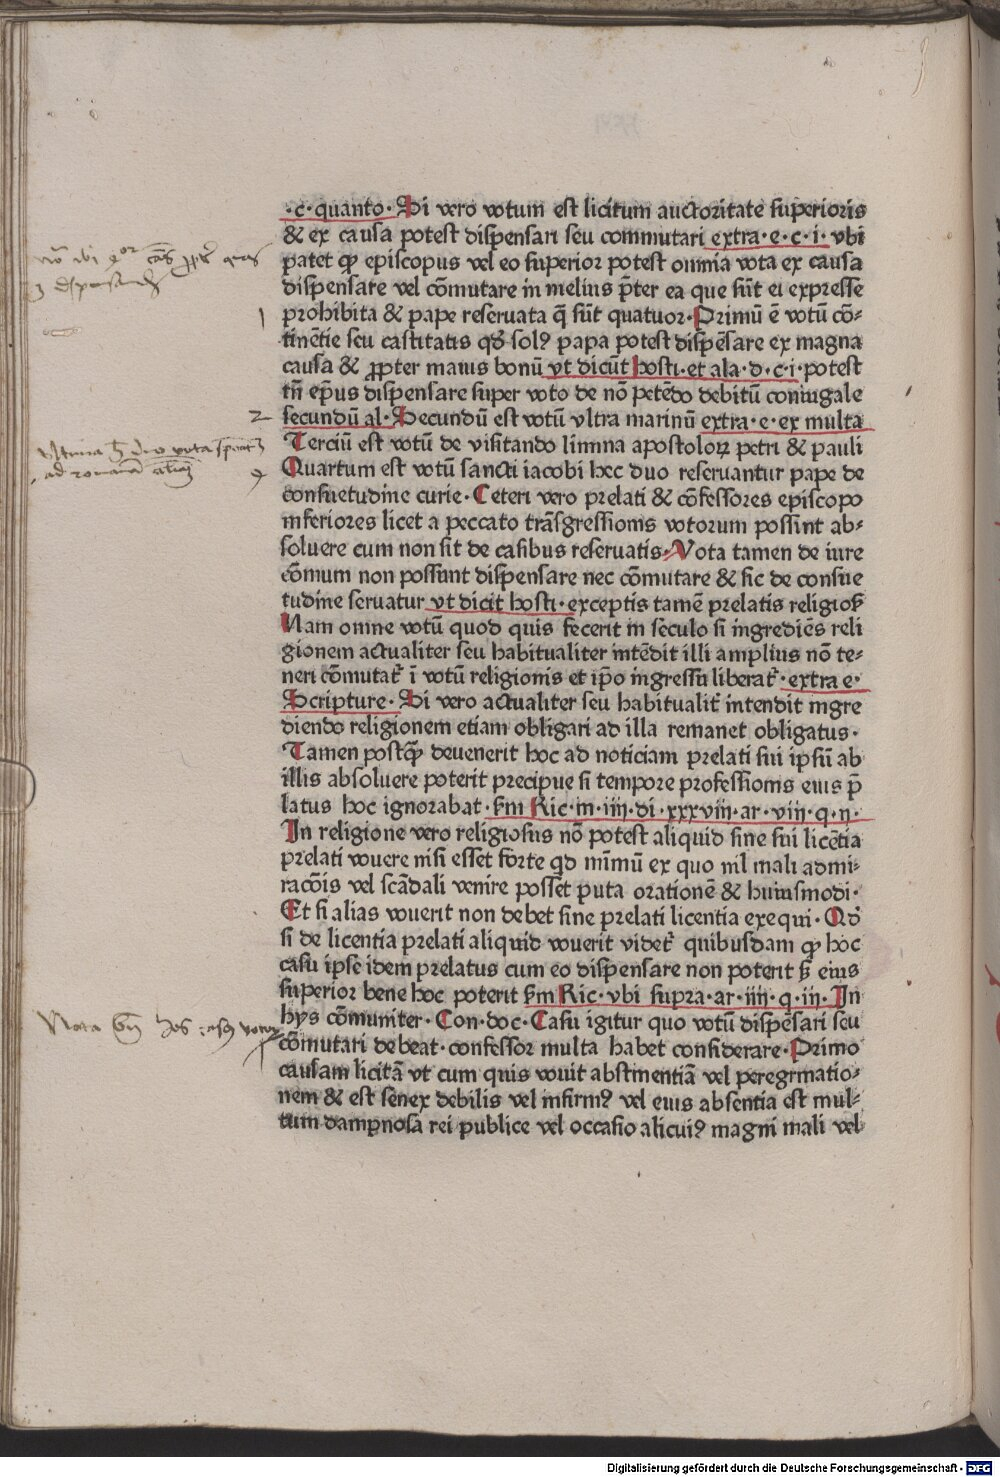 ·c·quanto· Si vero votum est licitum auctoritate superioris
& ex causa potest dispensari seu commutari extra·e·c·i· vbi
patet ꝙ episcopus vel eo superior potest omnia vota ex causa
dispensare vel cōmutare in melius p̄ter ea que sūt ei expresse
prohibita & pape reseruata q̄ sūt quatuor·Primū ē votū cō-
tinētie seu castitatis qđ solꝰ papa potest dispēsare ex magna
causa & ꝓpter maius bonū vt dicūt hosti·et ala·d·c·i·potest
tn̄ ep̄us dispensare super voto de nō petēdo debitū coniugale
secundū al·Secundū est votū vltra marinū extra·e·ex multa
Terciū est votū de visitando limina apostoloꝝ petri & pauli
Quartum est votū sancti iacobi hec duo reseruantur pape de
consuetudine curie·Ceteri vero prelati & cōfessores episcopo
inferiores licet a peccato trāsgressionis votorum possint ab-
soluere cum non sit de casibus reseruatis·Nota tamen de iure
cōmum non possunt dispensare nec cōmutare & sic de consue
tudine seruatur vt dicit hosti·exceptis tamē prelatis religioꝝ
Nam omne votū quod quis fecerit in seculo si ingrediēs reli
gionem actualiter seu habitualiter intēdit illi amplius nō te-
neri cōmutat̄ ī votū religionis et ip̄o ingressu liberat̄·extra e·
Scripture· Si vero actualiter seu habitualit̄ intendit ingre
diendo religionem etiam obligari ad illa remanet obligatus·
Tamen postꝙ̄ deuenerit hoc ad noticiam prelati sui ipsū ab
illis absoluere poterit precipue si tempore professionis eius p̄
latus hoc ignorabat·sm̄ Ric·in·iiij·di·xxxviij·ar·viij·q·ij·
In religione vero religiosus nō potest aliquid sine sui licētia
prelati vouere nisi esset forte qd minimū ex quo nil mali admi-
racōis vel scādali venire posset puta orationē & huiusmodi·
Et si alias vouerit non debet sine prelati licentia exequi·Qđ
si de licentia prelati aliquid vouerit videt̄ quibusdam ꝙ hoc
casu ipse idem prelatus cum eo dispensare non poterit sꝫ eius
superior bene hoc poterit sm̄ Ric·vbi supra·ar·iiij·q·iij·In
hys cōmuniter·Con·doc·Casu igitur quo votū dispēsari seu
cōmutari debeat·confessor multa habet considerare·Primo
causam licitā vt cum quis vouit abstinentiā vel peregrinatio-
nem & est senex debilis vel infirmꝰ vel eius absentia est mul-
tum dampnosa rei publice vel occasio alicuiꝰ magni mali vel
Digitalisierung gefördert durch die Deutsche Forschungsgemeinschaft - DFG